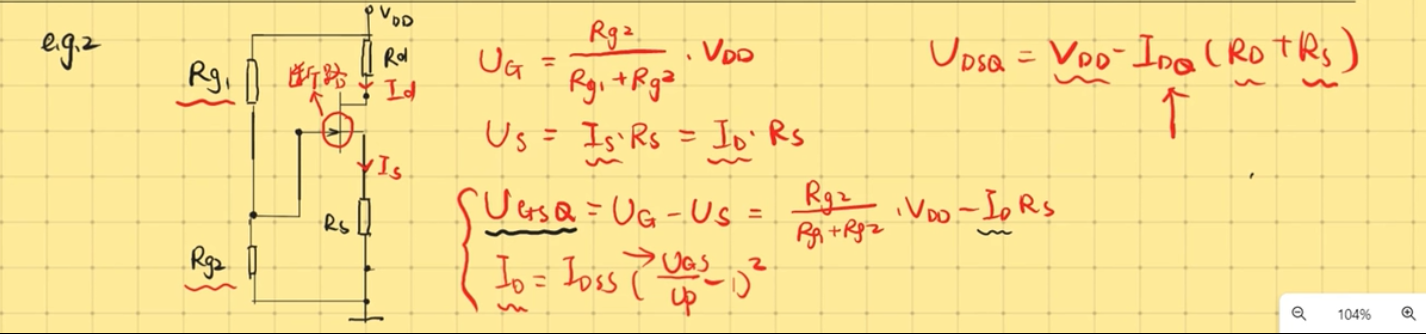 e.g.2
V_DD
Rg₁
Rd
断路
Id
Is
Rs
Rg₂
U_G = Rg₂ / (Rg₁ + Rg₂) · V_DD
U_S = I_S · R_S = I_D · R_S
U_GSQ = U_G - U_S = Rg₂ / (Rg₁ + Rg₂) · V_DD - I_D R_S
I_D = I_DSS (U_GS / U_P - 1)²
U_DSQ = V_DD - I_DQ (R_D + R_S)
104%